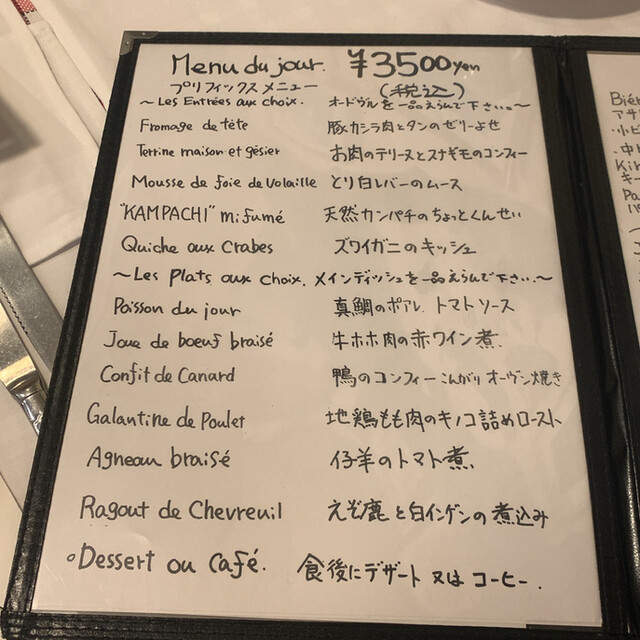 Menu du jour. ¥3500yen
プリフィックスメニュー (税込)
～Les Entrées aux choix. オードヴルを一品えらんで下さい。～
Fromage de tête 豚カシラ肉とタンのゼリーよせ
Terrine maison et gésier お肉のテリーヌとスナギモのコンフィー
Mousse de foie de Volaille とり白レバーのムース
"KAMPACHI" mifumé 天然カンパチのちょっとくんせい
Quiche aux Crabes ズワイガニのキッシュ
～Les Plats aux choix. メインディッシュを一品えらんで下さい.～
Poisson du jour 真鯛のポアレ トマトソース
Joue de boeuf braisé 牛ホホ肉の赤ワイン煮.
Confit de Canard 鴨のコンフィー こんがりオーヴン焼き
Galantine de Poulet 地鶏もも肉のキノコ詰めロースト
Agneau braisé 仔羊のトマト煮.
Ragout de Chevreuil えぞ鹿と白インゲンの煮込み
○Dessert ou Café. 食後にデザート又はコーヒー.
Bièr
アサ
・小ビ
・中
Kir
キー
Pa
パ